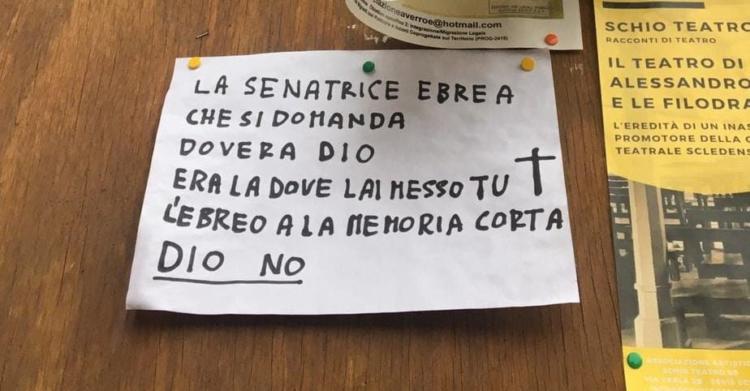 azioneaverroe@hotmail.com
LA SENATRICE EBREA
CHE SI DOMANDA
DOVERA DIO
ERA LA DOVE LAI MESSO TU
L'EBREO A LA MEMORIA CORTA
DIO NO
SCHIO TEATRO
RACCONTI DI TEATRO
IL TEATRO DI
ALESSANDRO
E LE FILODRA
L'EREDITÀ DI UN INAS
PROMOTORE DELLA C
TEATRALE SCLEDENS
ASSOCIAZIONE ARTISTI
SCHIO TEATRO